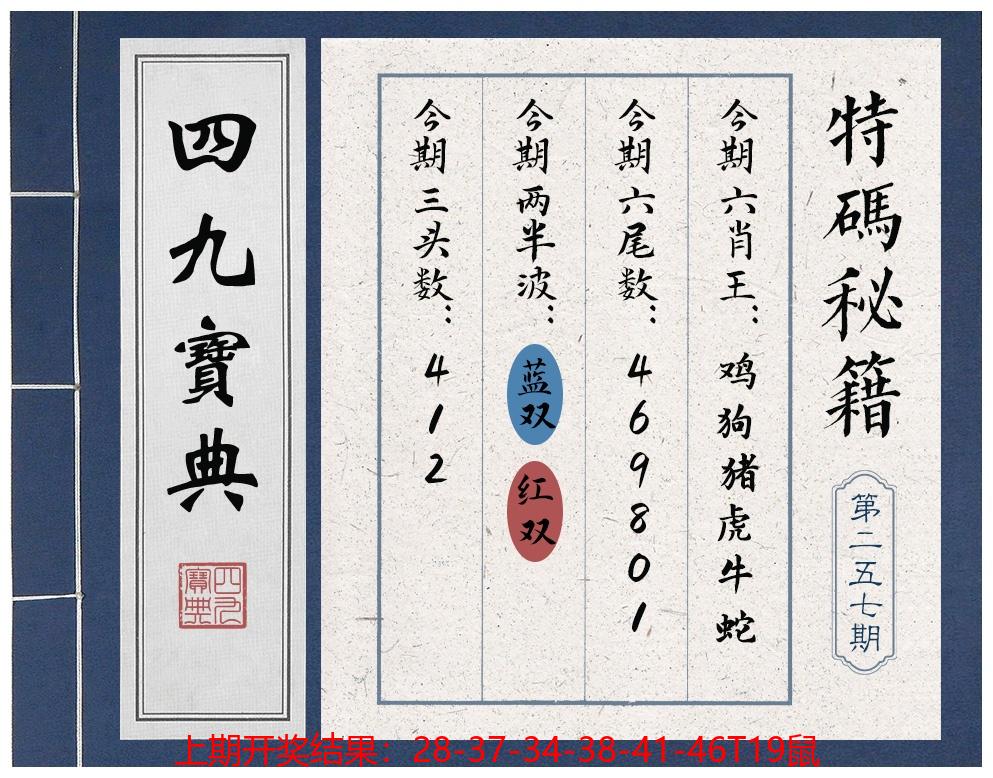 特碼秘籍
第二五七期
今期六肖王：鸡狗猪虎牛蛇
今期六尾数：469801
今期两半波：蓝双 红双
今期三头数：412
四九寶典
四九寶典
上期开奖结果：28-37-34-38-41-46T19鼠